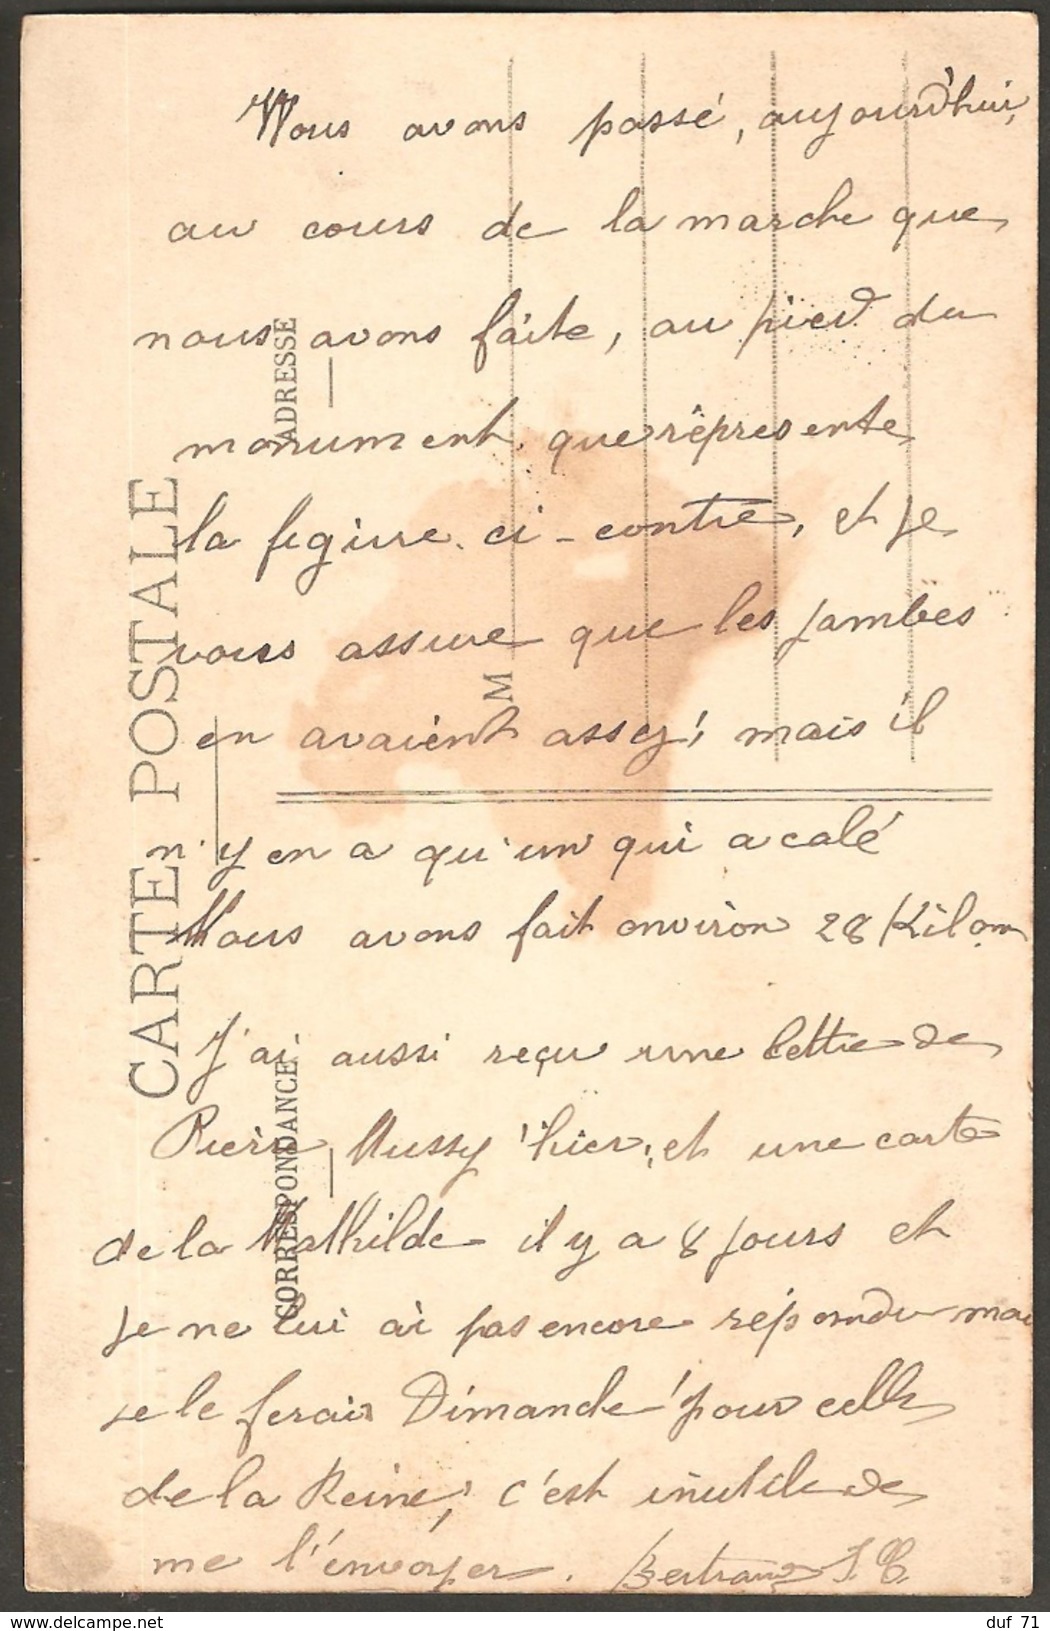 Nous avons passé, aujourd'hui,
au cours de la marche que
nous avons faite, au pied du
monument que réprésente
la figure ci-contre, et je
vous assure que les jambes
en avaient assez! mais il
n'y en a qu'un qui a calé
Nous avons fait environ 28 Kilom
J'ai aussi reçu une lettre de
Pierre Mussy hier, et une carte
de la Mathilde il y a 8 jours et
je ne lui ai pas encore répondu mai
je le ferais Dimanche! pour celle
de la Reine, c'est inutile de
me l'envoyer. Bertrand
CARTE POSTALE
CORRESPONDANCE
ADRESSE
M
duf 71